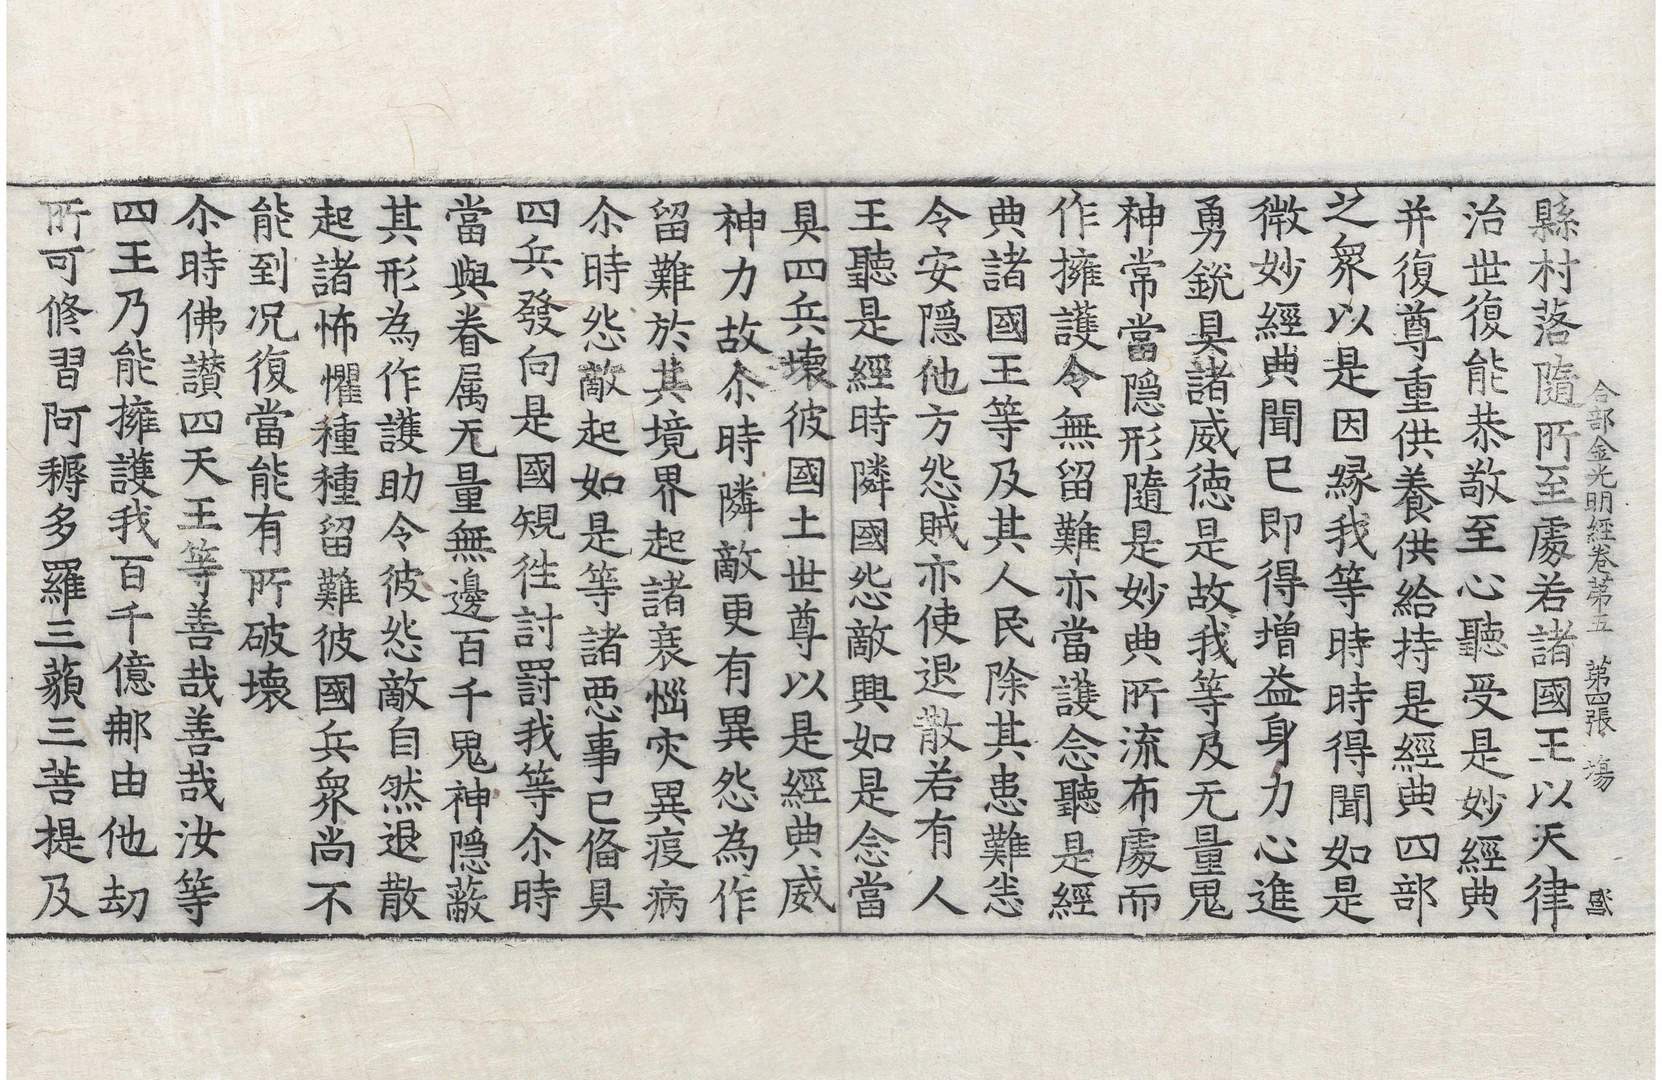 縣村落隨所至處若諸國王以天律
合部金光明經卷苐五 苐四張 塲
治世復能恭敬至心聽受是妙經典
并復尊重供養供給持是經典四部
之衆以是因縁我等時時得聞如是
微妙經典聞已即得增益身力心進
勇銳具諸威德是故我等及无量鬼
神常當隠形隨是妙典所流布處而
作擁護令無留難亦當護念聽是經
典諸國王等及其人民除其患難悉
令安隠他方怨賊亦使退散若有人
王聽是經時隣國怨敵興如是念當
具四兵壞彼國土世尊以是經典威
神力故尒時隣敵更有異怨為作
留難於其境界起諸衰惱灾異疫病
尒時怨敵起如是等諸惡事已俻具
四兵發向是國規往討罸我等尒時
當與眷属无量無邊百千鬼神隠蔽
其形為作護助令彼怨敵自然退散
起諸怖懼種種留難彼國兵衆尚不
能到况復當能有所破壞
尒時佛讃四天王等善哉善哉汝等
四王乃能擁護我百千億那由他劫
所可修習阿耨多羅三藐三菩提及